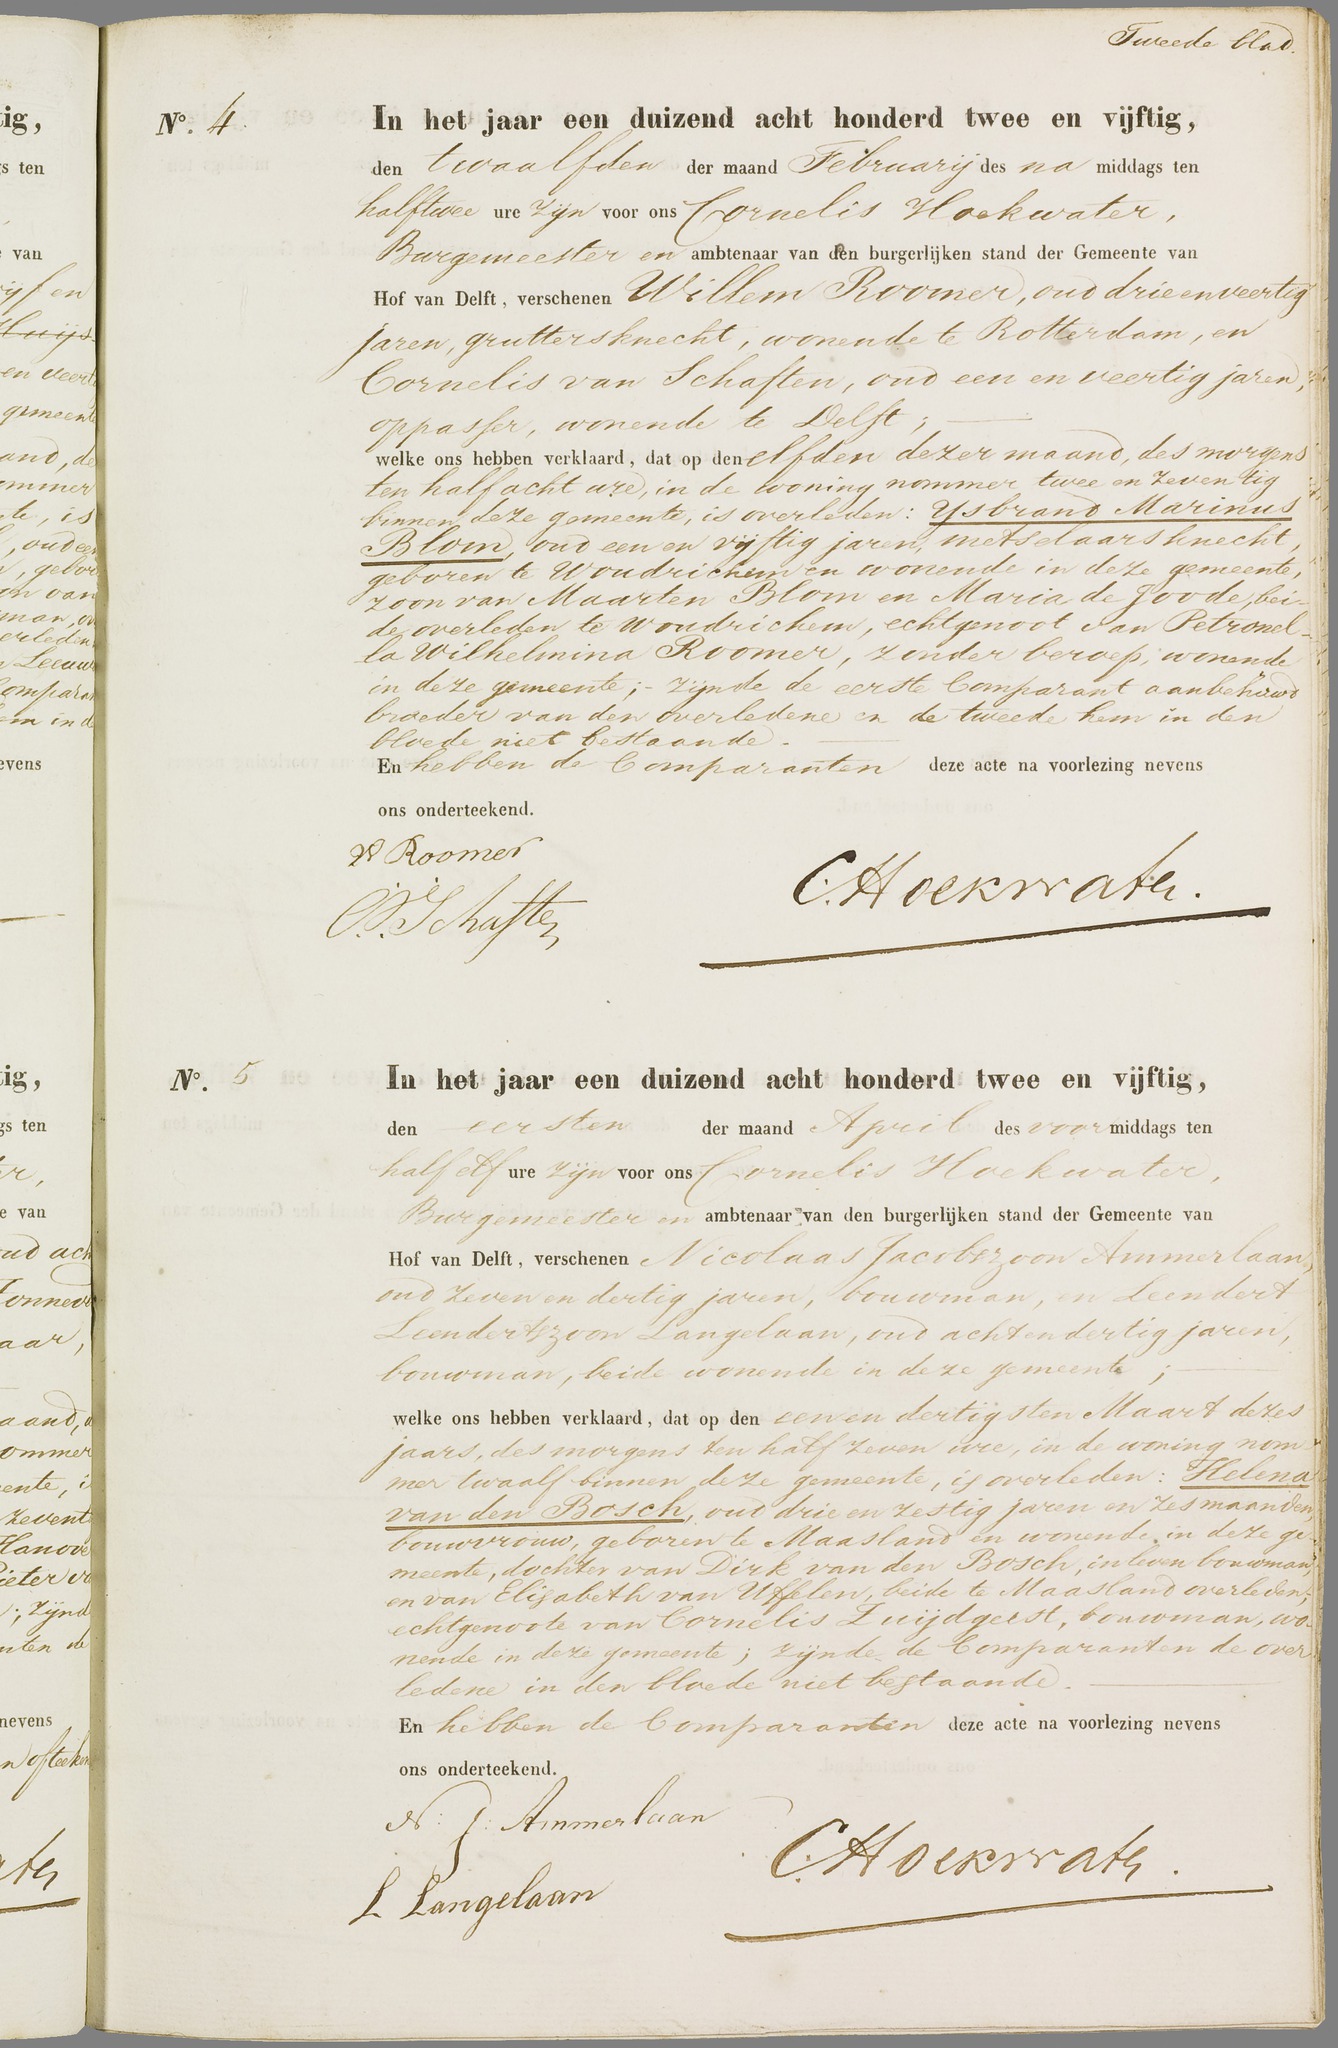 Tweede blad.
Nº. 4.
In het jaar een duizend acht honderd twee en vijftig,
den twaalfden der maand Februarij des na middags ten
halftwee ure zijn voor ons Cornelis Hoekwater,
Burgemeester en ambtenaar van den burgerlijken stand der Gemeente van
Hof van Delft, verschenen Willem Roomer, oud drie en veertig
jaren, gruttersknecht, wonende te Rotterdam, en
Cornelis van Schaften, oud een en veertig jaren,
oppasser, wonende te Delft;
welke ons hebben verklaard, dat op den elfden dezer maand, des morgens
ten half acht ure, in de woning nommer twee en zeventig
binnen deze gemeente, is overleden: Ysbrand Marinus
Blom, oud een en vijftig jaren, metselaarsknecht,
geboren te Woudrichem en wonende in deze gemeente,
zoon van Maarten Blom en Maria de Joode, bei-
de overleden te Woudrichem, echtgenoot van Petronel-
la Wilhelmina Roomer, zonder beroep, wonende
in deze gemeente; - zijnde de eerste Comparant aanbehuwd
broeder van den overledene en de tweede hem in den
bloede niet bestaande.
En hebben de Comparanten deze acte na voorlezing nevens
ons onderteekend.
W Roomer
C.V. Schaften
C. Hoekwater.
Nº. 5
In het jaar een duizend acht honderd twee en vijftig,
den eersten der maand April des voor middags ten
half elf ure zijn voor ons Cornelis Hoekwater,
Burgemeester en ambtenaar van den burgerlijken stand der Gemeente van
Hof van Delft, verschenen Nicolaas Jacobszoon Ammerlaan,
oud zeven en dertig jaren, bouwman, en Leendert
Leendertszoon Langelaan, oud acht en dertig jaren,
bouwman, beide wonende in deze gemeente;
welke ons hebben verklaard, dat op den een en dertigsten Maart dezes
jaars, des morgens ten half zeven ure, in de woning nom-
mer twaalf binnen deze gemeente, is overleden: Helena
van den Bosch, oud drie en zestig jaren en zes maanden,
bouwvrouw, geboren te Maasland en wonende in deze ge-
meente, dochter van Dirk van den Bosch, in leven bouwman,
en van Elisabeth van Uffelen, beide te Maasland overleden,
echtgenoote van Cornelis Zuijdgeest, bouwman, wo-
nende in deze gemeente; zijnde de Comparanten de over
ledene in den bloede niet bestaande.
En hebben de Comparanten deze acte na voorlezing nevens
ons onderteekend.
N: J: Ammerlaan
L Langelaan
C. Hoekwater.